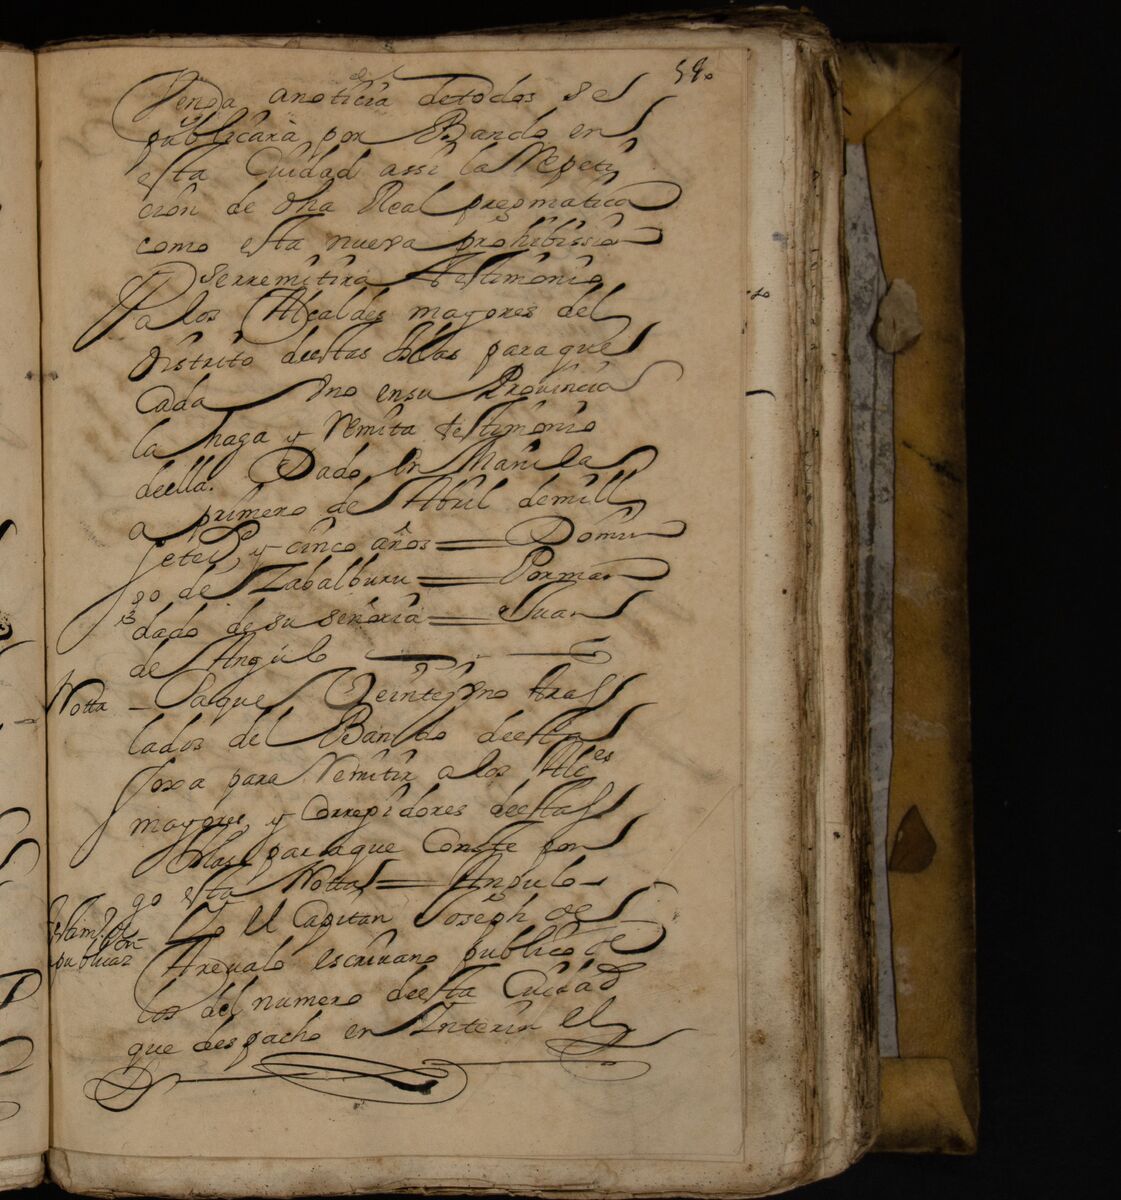 58.
Venga a noticia de todos se
publicará por Bando en
esta Ciudad assi la Repeti
cion de dha Real pregmatica
como esta nueva prohibission
y se rremitira testimonio
a los Alcaldes mayores del
distrito de estas Yslas para que
Cada Vno en su Provincia
la haga y Remita testimonio
de ella. Dado En Manila
a primero de Abril de mill
setes y cinco años = Domin
go de Zabalburu = Por man
dado de su señoria = Juan
de Angulo
Notta - Saque Veinte y vno tras
lados del Bando de esta
foxa para Remitir a los Alces
mayores, y Corregidores de estas
Yslas para que Conste pon
go esta Notta = Angulo
Testimo de
publicaon
Yo El Capitan Joseph de
Arevalo escrivano publico de
los del numero de esta Ciudad
que despacho en Interin El